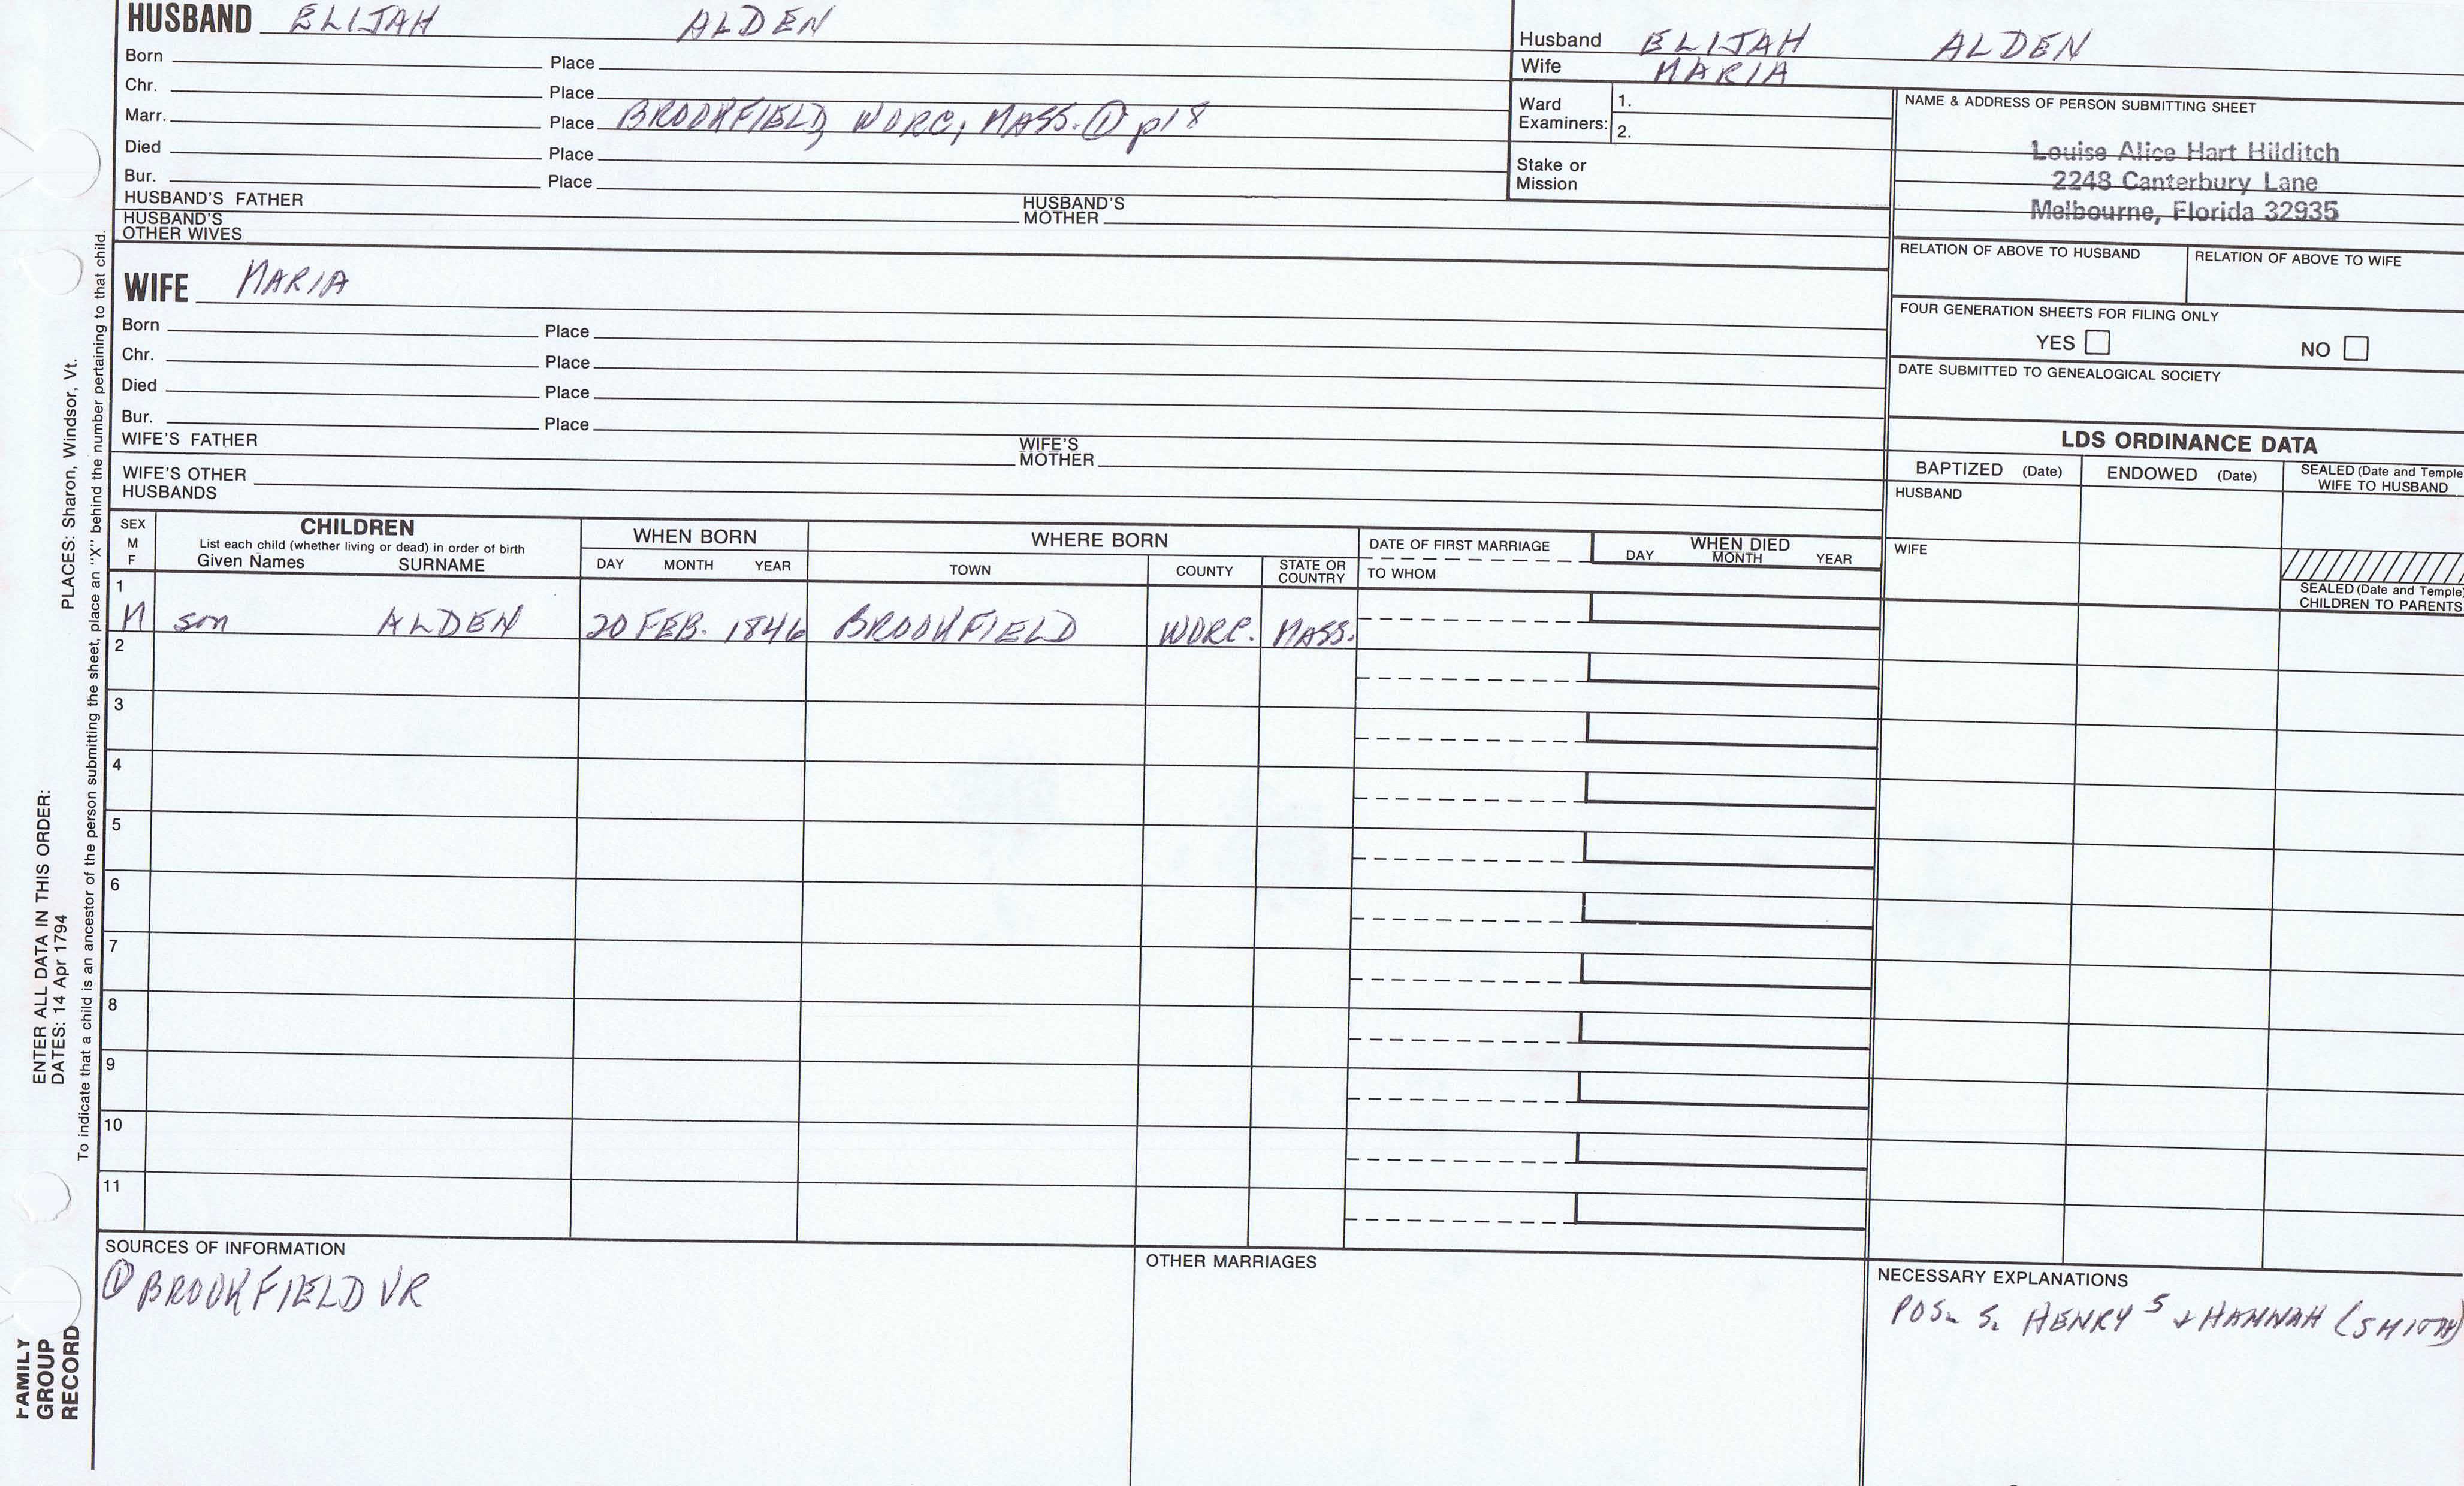 HUSBAND ELIJAH ALDEN
Born Place
Chr. Place
Marr. Place BROOKFIELD, WORC, MASS. ① p18
Died Place
Bur. Place
HUSBAND'S FATHER HUSBAND'S MOTHER
HUSBAND'S OTHER WIVES
Husband ELIJAH ALDEN
Wife MARIA
Ward Examiners: 1.
2.
Stake or Mission
NAME & ADDRESS OF PERSON SUBMITTING SHEET
Louise Alice Hart Hilditch
2248 Canterbury Lane
Melbourne, Florida 32935
RELATION OF ABOVE TO HUSBAND RELATION OF ABOVE TO WIFE
FOUR GENERATION SHEETS FOR FILING ONLY
YES NO
DATE SUBMITTED TO GENEALOGICAL SOCIETY
WIFE MARIA
Born Place
Chr. Place
Died Place
Bur. Place
WIFE'S FATHER WIFE'S MOTHER
WIFE'S OTHER HUSBANDS
LDS ORDINANCE DATA
BAPTIZED (Date) ENDOWED (Date) SEALED (Date and Temple) WIFE TO HUSBAND
HUSBAND
WIFE
SEALED (Date and Temple) CHILDREN TO PARENTS
SEX M F
CHILDREN
List each child (whether living or dead) in order of birth
Given Names SURNAME
WHEN BORN
DAY MONTH YEAR
WHERE BORN
TOWN COUNTY STATE OR COUNTRY
DATE OF FIRST MARRIAGE
TO WHOM
WHEN DIED
DAY MONTH YEAR
1
M son ALDEN 20 FEB. 1846 BROOKFIELD WORC. MASS.
2
3
4
5
6
7
8
9
10
11
SOURCES OF INFORMATION
① BROOKFIELD VR
OTHER MARRIAGES
NECESSARY EXPLANATIONS
POS. S. HENRY 5 + HANNAH (SMITH)
PLACES: Sharon, Windsor, Vt.
ENTER ALL DATA IN THIS ORDER:
DATES: 14 Apr 1794
To indicate that a child is an ancestor of the person submitting the sheet, place an "X" behind the number pertaining to that child.
FAMILY
GROUP
RECORD